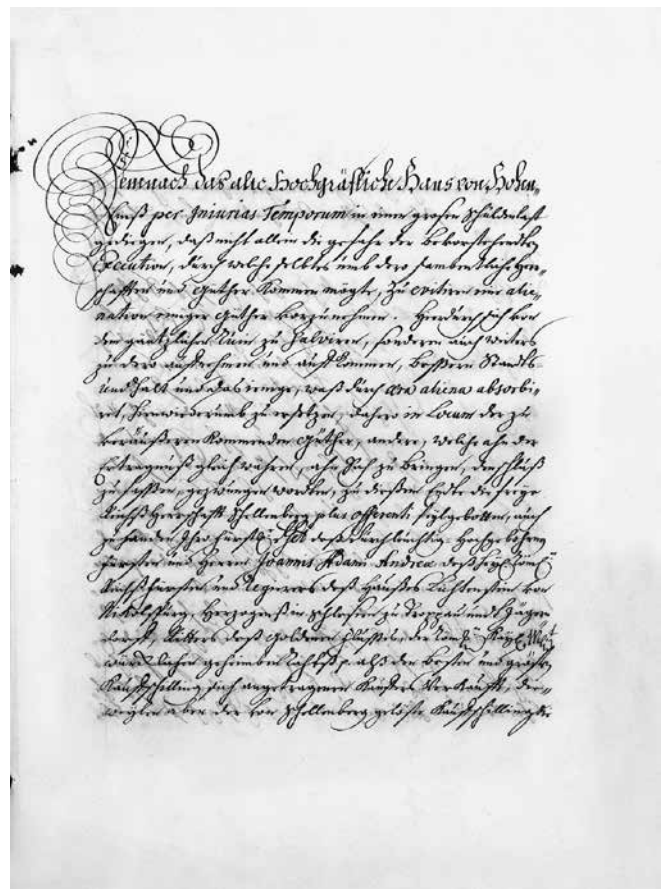 Demnach das alte Hochgräfliche Haus von Hohen„
Embß per Iniurias Temporum in einen grosen schuldenlast
gediegen, daß nicht allein die gefahr der bevorstehenden
Execution, durch welche selbtes umb dero sambentliche Herr„
schafften und Güther kommen mögte, zu evitiren eine alie„
nation einiger Güther vorzunehmen. Hierdurch sich von
dem gäntzlichen Ruin zu salviren, sonderen auch weiters
zu dero aufnehmen und auf kommen, bessern Standts
undhalt und das ienige, waß durch æra aliena absorbi„
ret, hinwiederumb zu ersetzen, dahero in Locum der zu
veräußeren kommenden Güther, andere, welche ahn der
Erträgnuß gleich wahren, ahn sich zu bringen, den schluß
zu fassen, gezwungen worden, zu dießem Endte die freye
Reichß Herrschafft Schellenberg plus offerenti feylgebotten, auch
zu handen Ihro fürstl: deß durchleuchtig-Hochgebohrnen
fürsten und Herren Joannis Adami Andreæ deß Heyl: Röm:
Reichßfürsten und Regierers deß Haußes Lichtenstein von
Nikolspurg, Hertzogens in Schlesien zu Troppau und Jägern
dorff, Ritters deß goldenen flusses, der Röm: Kayl: Maytt:
würcklichen geheimben Rathß als den besten und größten
Kauffschilling sich angetragenen Kauffers verkaufft, die„
weylen aber der von Schellenberg gelöste Kauffschilling die